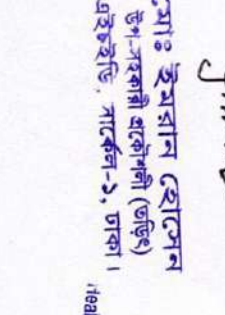 মোঃ ইমরান হোসেন
উপ-সহকারী প্রকৌশলী (তড়িৎ)
এইচইডি, সার্কেল-১, ঢাকা।
Heal